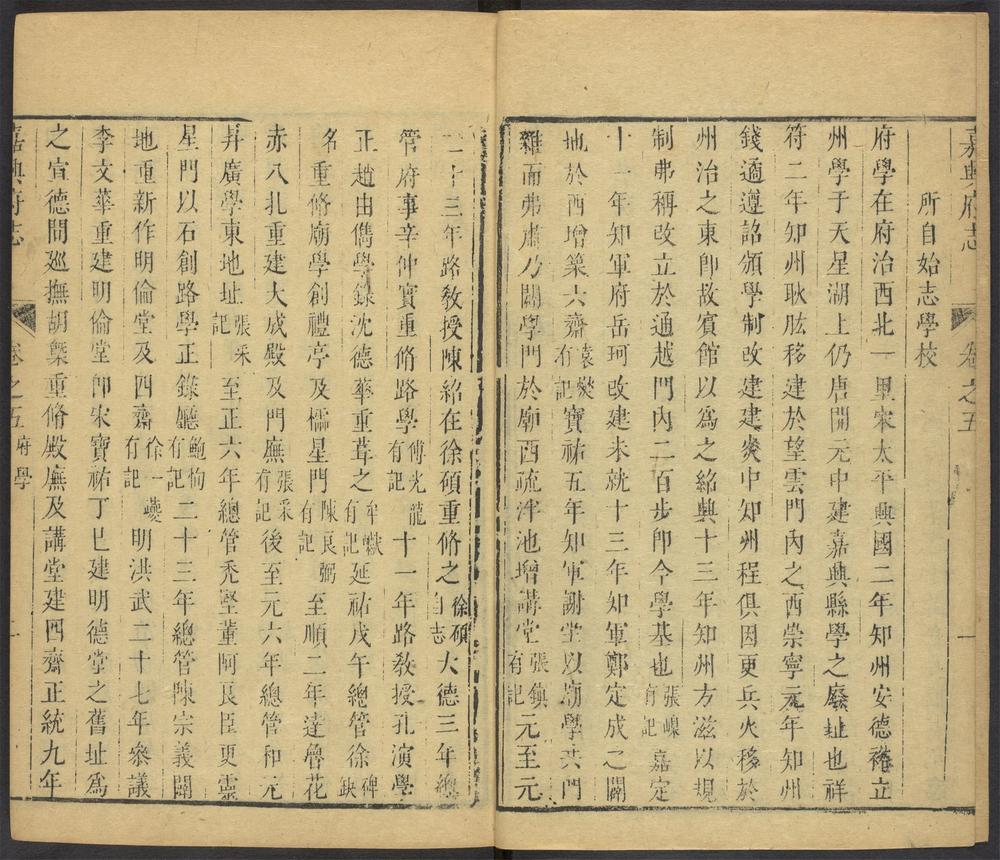 嘉興府志 卷之五 一
所自始志學校
府學在府治西北一里宋太平興國二年知州安德裕立
州學于天星湖上仍唐開元中建嘉興縣學之廢址也祥
符二年知州耿肱移建於望雲門內之西崇寧元年知州
錢遹遵詔頒學制改建建炎中知州程俱因更兵火移於
州治之東卽故賓館以爲之紹興十三年知州方滋以規
制弗稱改立於通越門內二百步卽今學基也張嵲有記嘉定
十一年知軍府岳珂改建未就十三年知軍鄭定成之闢
地於西增築六齋袁燮有記寶祐五年知軍謝堂以廟學共門
雜而弗肅乃闢學門於廟西疏泮池增講堂張鎮有記元至元
二十三年路敎授陳紹在徐碩重脩之徐碩自志大德三年總
管府事辛仲實重脩路學傅光龍有記十一年路敎授孔演學
正趙由儁學錄沈德華重葺之牟巘有記延祐戊午總管徐碑缺
名重脩廟學創禮亭及櫺星門陳良弼有記至順二年達魯花
赤八扎重建大成殿及門廡張采有記後至元六年總管和元
昇廣學東地址張采記至正六年總管禿堅董阿良臣更靈
星門以石創路學正錄廳鮑恂有記二十三年總管陳宗義闢
地重新作明倫堂及四齋徐一夔有記明洪武二十七年參議
李文華重建明倫堂卽宋寶祐丁巳建明德堂之舊址爲
之宣德間廵撫胡槩重脩殿廡及講堂建四齋正統九年
嘉興府志 卷之五 府學 一